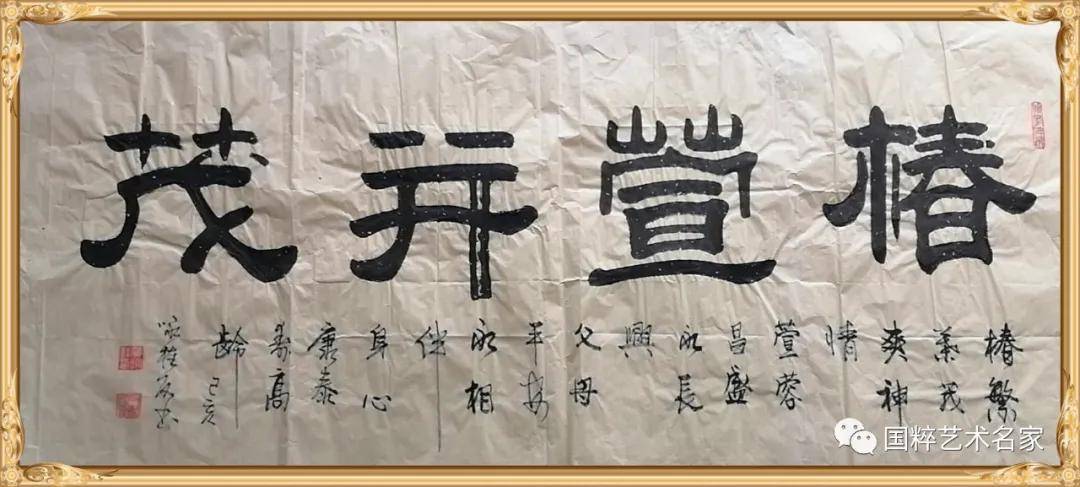 椿萱并茂
椿繁
葉茂
爽神
情
萱蓉
昌盛
永長
興
父母
平安
永相
伴
身心
康泰
寿高
龄 己亥
书
国粹艺术名家